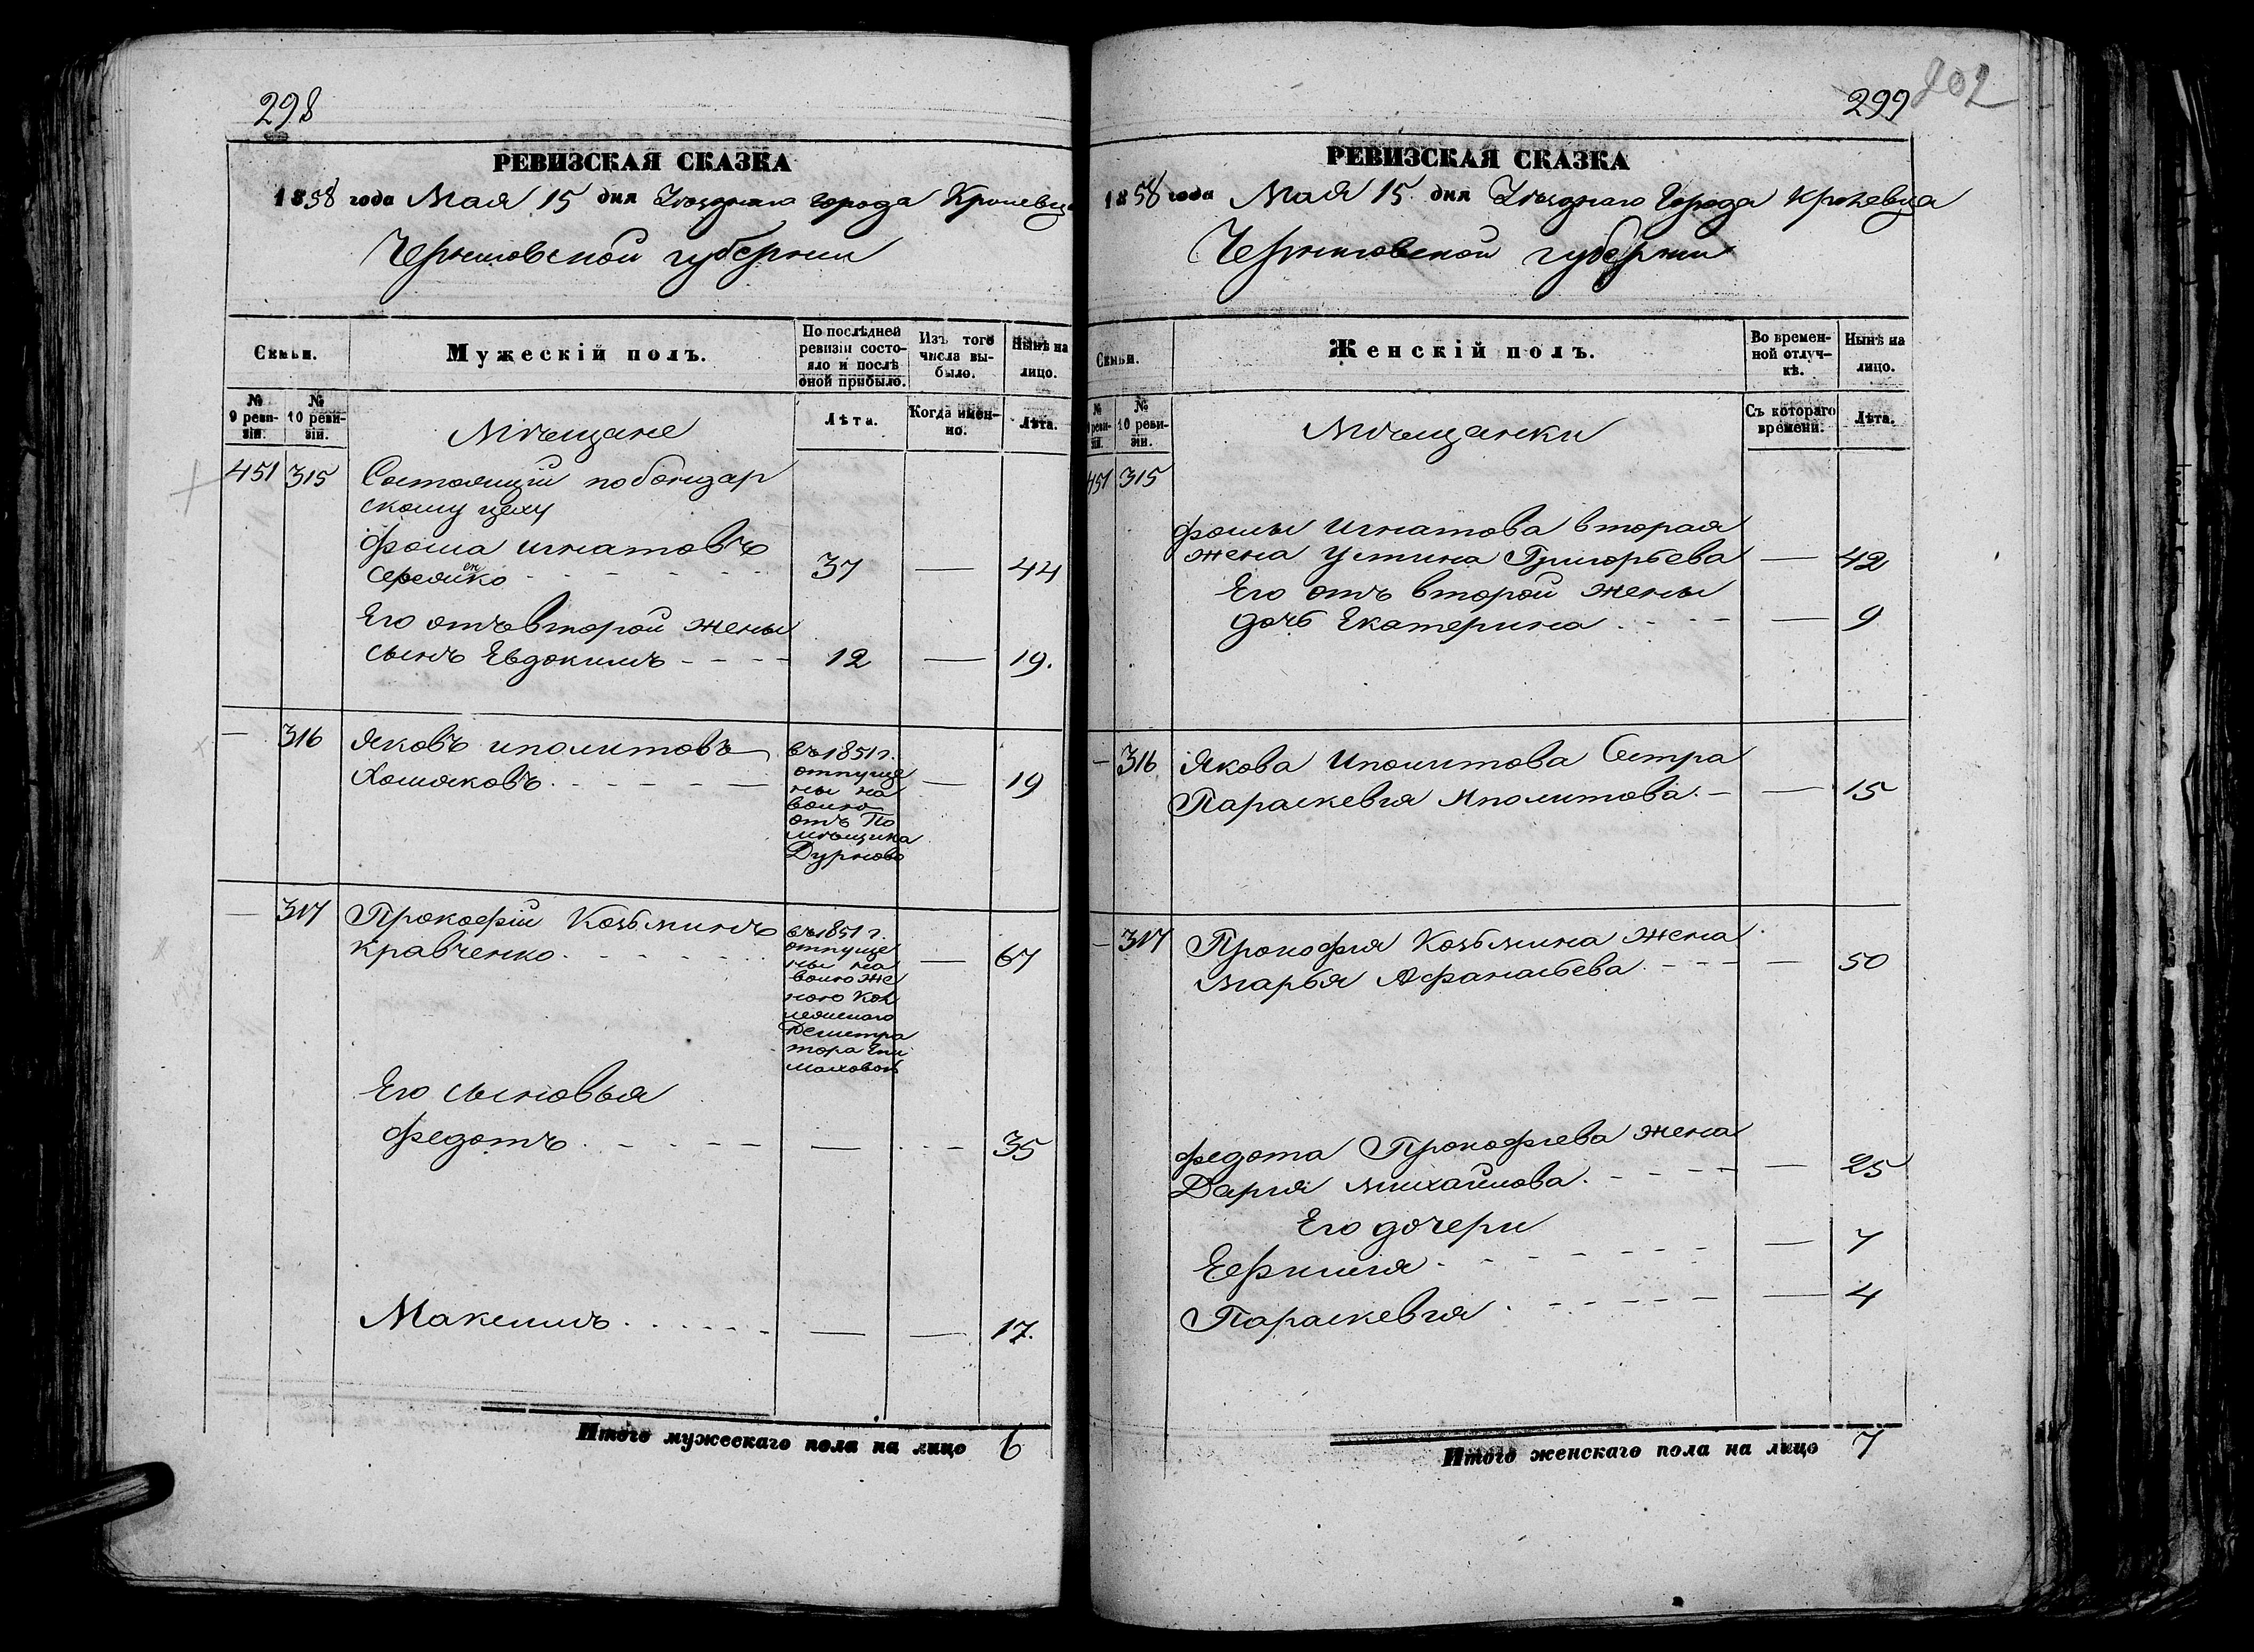 298
РЕВИЗСКАЯ СКАЗКА
1858 года Мая 15 дня Уѣзднаго города Кролевца
Черниговской губерніи
Семьи.
Мужескій полъ.
По послѣдней ревизіи состояло и послѣ оной прибыло.
Изъ того числа выбыло.
Нынѣ на лицо.
№ 9 ревизіи.
№ 10 ревизіи.
Мѣщане
Лѣта.
Когда именно.
Лѣта.
451 315 Состоящій по бондар
скому цеху
Фома Игнатовъ
37 — 44
Его отъ второй жены
сынъ Евдокимъ - - - - 12 — 19.
— 316 Яковъ Иполитовъ
Хомяковъ - - - - - — 19
въ 1851 г.
отпуще
ны на
волю
отъ По
мѣщика
Дурново
— 317 Прокофій Козьминъ
Кравченко - - - - - - — 67
въ 1851 г.
отпуще
ны на
волю же
ною Кол
лежскаго
Регистра
тора
Его сыновья
Федотъ - - - - — - - 35
Максимъ - - - - - - — — 17.
Итого мужескаго пола на лицо 6
299
202
РЕВИЗСКАЯ СКАЗКА
1858 года Мая 15 дня Уѣзднаго Города Кролевца
Черниговской губерніи
Семьи.
Женскій полъ.
Во временной отлучкѣ.
Нынѣ на лицо.
№ 9 ревизіи.
№ 10 ревизіи.
Мѣщанки
Съ котораго времени.
Лѣта.
451 315
Фомы Игнатова вторая
жена Устина Григорьева — 42
Его отъ второй жены
дочь Екатерина - - - - — 9
— 316 Якова Иполитова Сестра
Параскевія Иполитова - — 15
— 317 Прокофія Козьмина жена
Марья Афанасьева - - - - — 50
Федота Прокофіева жена
Дарія Михайлова - - - - — 25
Его дочери
Ефимія - - - - - - — 7
Параскевія - - - - - - — 4
Итого женскаго пола на лицо 7